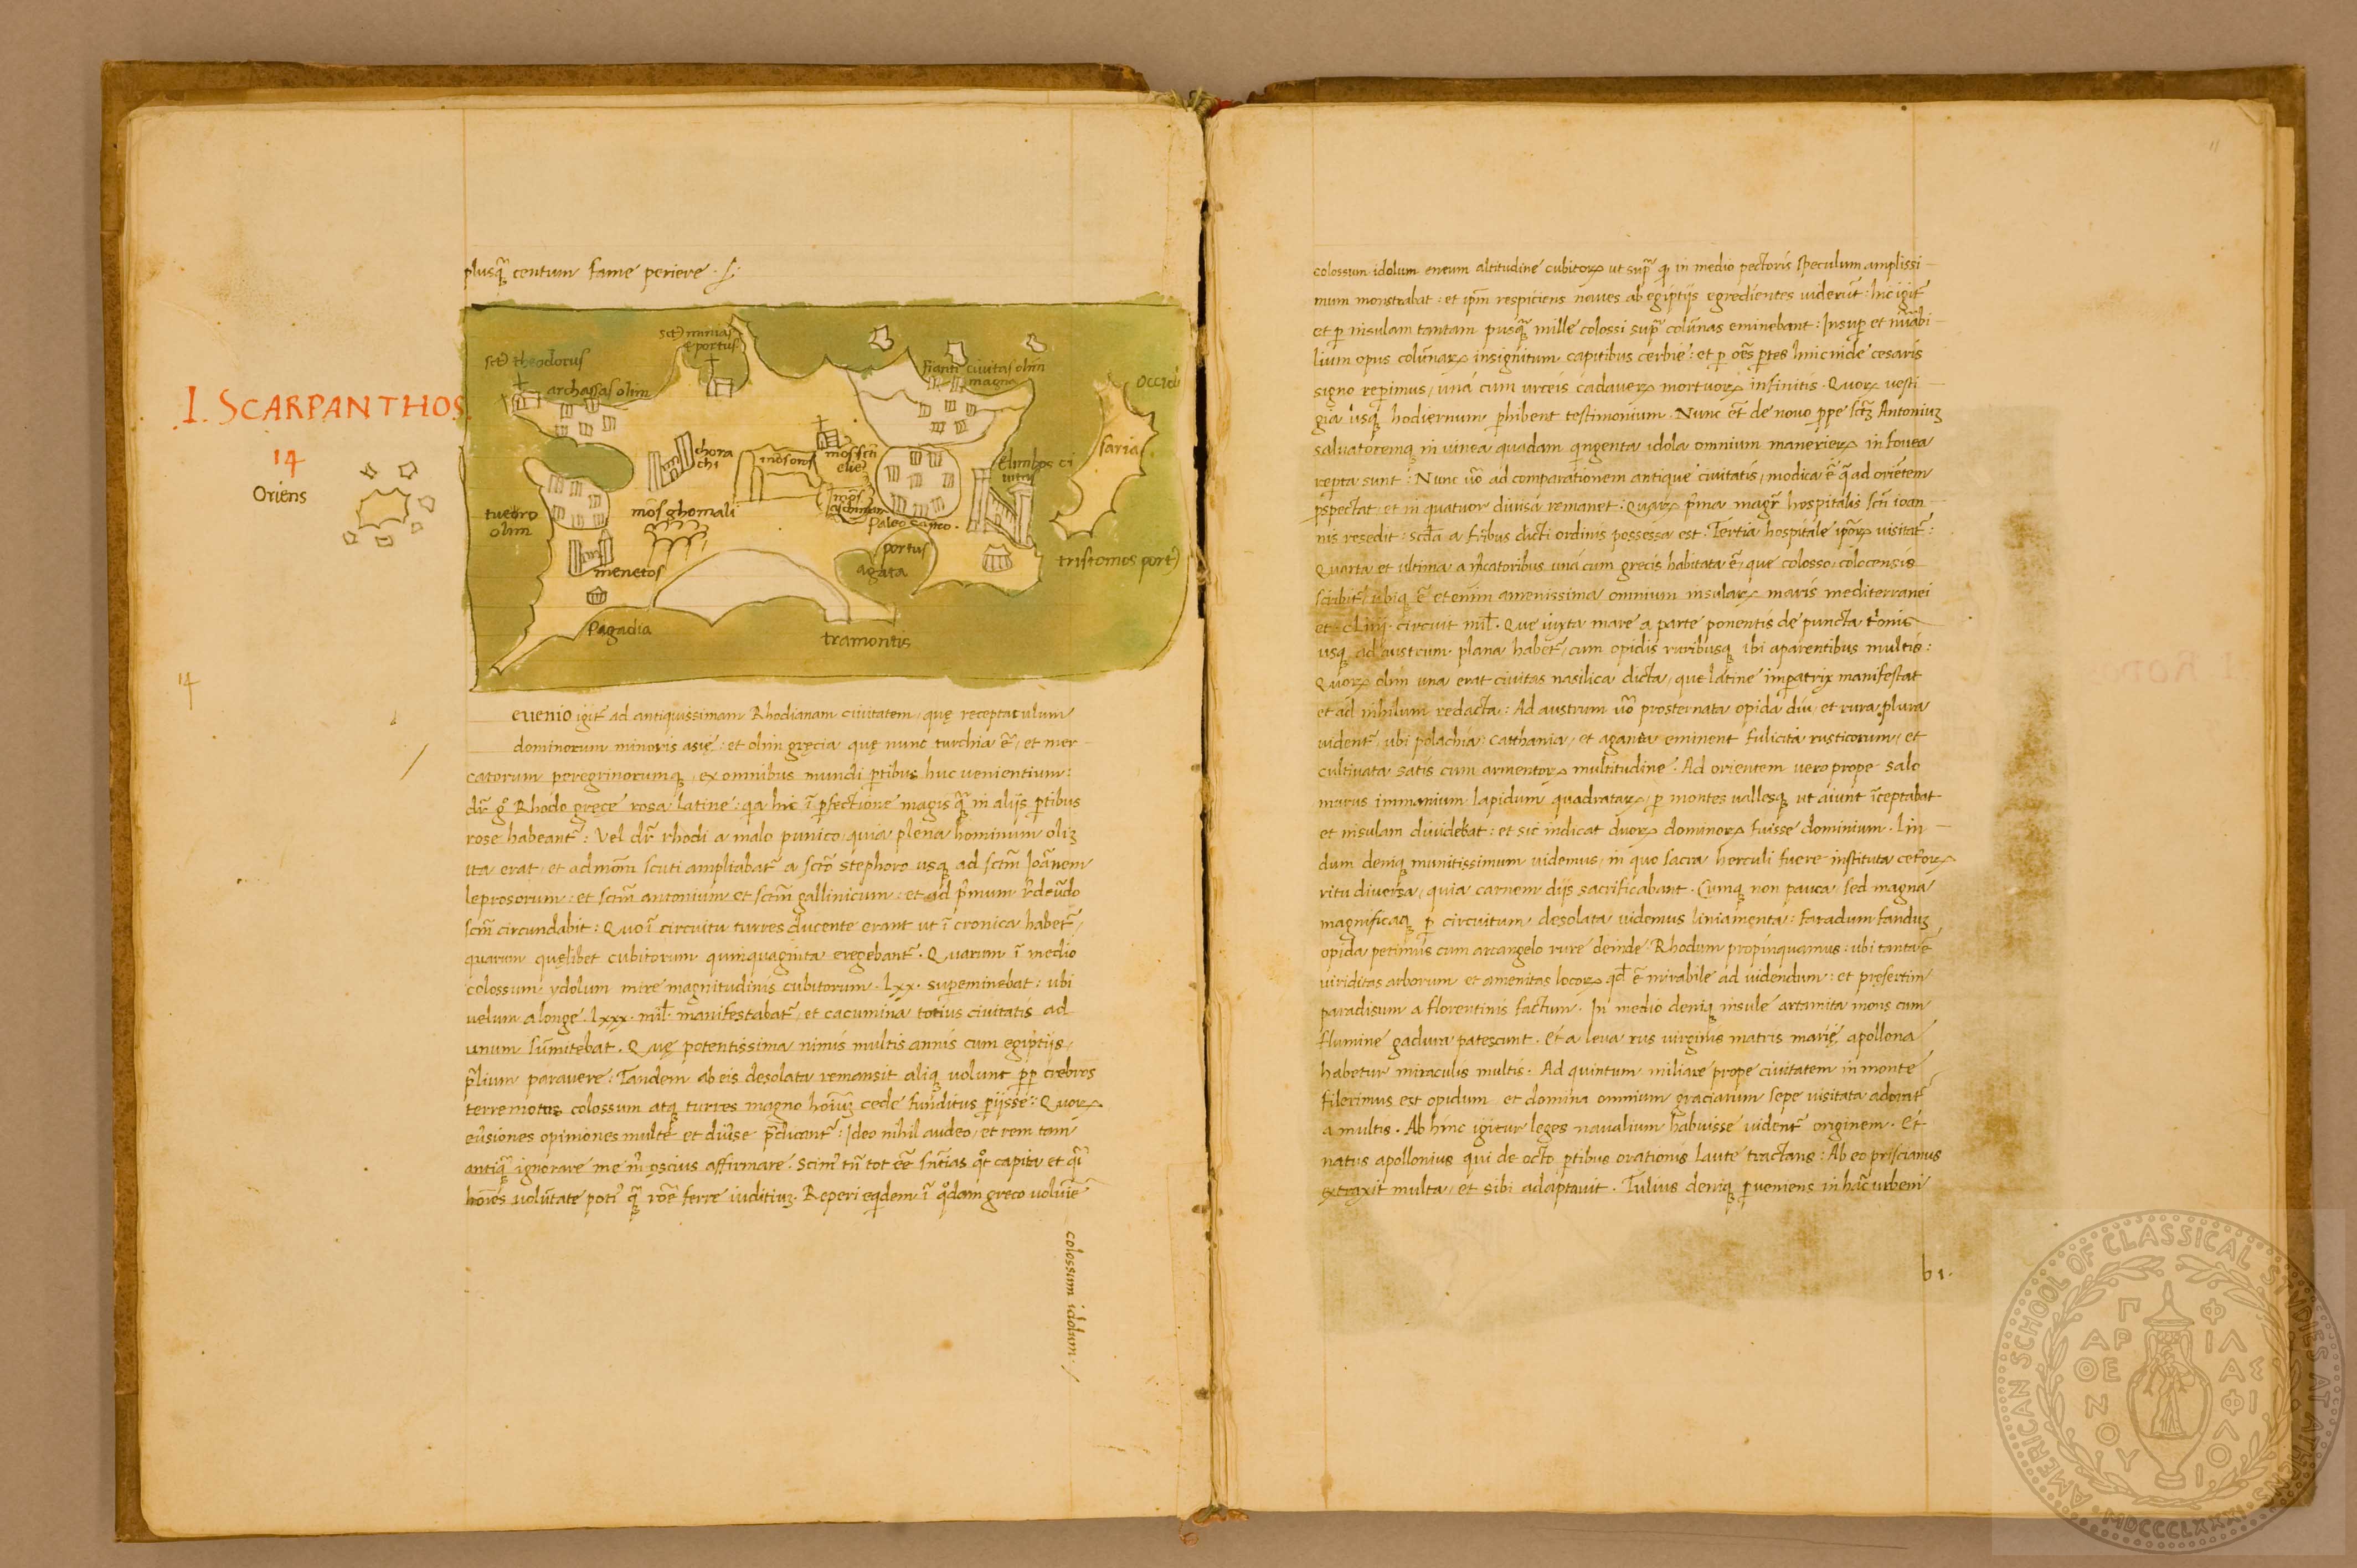 plusq̃ centum fame periere.
I. SCARPANTHOS.
14
Oriens
14
sct̃ theodorus
archassas olim
sct̃ minias
e portus
fianti civitas olim
magna
occid
saria
chora
chi
mõs oros
mõs scti
elie
elimbos ci
vitas
tueoro
olim
mõs ghomali
mõs
paleo castro.
menetos
portus
agata
tristomos port
pagadia
tramontis
euenio igit̃ ad antiquissimam Rhodianam ciuitatem, quę receptaculum
dominorum minoris asię: et olim gręcia quę nunc turchia ẽ, et mer
catorum peregrinorumq, ex omnibus mundi ptibus huc uenientium:
dr̃ g̊ Rhodo gręce rosa latine: qa hic ĩ pfectione magis q̃ in alijs ptibus
rose habeant̃: Vel dr̃ rhodi a malo punico, quia plena hominum olĩ
ita erat, et ad mom̃ scuti ampliabat̃ a scto stephoro usq ad sctm̃ Joãnem
leprosorum: et sctm̃ antonium et sctm̃ gallinicum: et ad p̃mum r̃deũdo
scm̃ circundabit: Quo ĩ circuitu turres ducente erant ut ĩ cronica habet̃,
quarum quęlibet cubitorum quinquaginta eregebant̃. Quarum ĩ medio
colossum ydolum mire magnitudinis cubitorum .lxx. supeminebat: ubi
uelum a longe .lxxx. mil̃. manifestabat̃, et cacumina totius ciuitatis ad
unum sũmitebat. Quę potentissima nimis multis annis cum egiptijs,
p̃lium parauere: Tandem ab eis desolata remansit aliq uolunt pp crebros
terremotus colossum atq turres magno hoĩuȝ cede funditus pijsse: Quoꝝ
eũsiones opiniones multe et diũse p̃dicant̃: Ideo nihil audeo, et rem tam
antiq̃ ignorare me affirmare. Scim̃ tñ tot eẽ sñtias qt̊ capita et
hoĩes uolũtate poti̾ q̃ roẽ ferre iuditiuȝ. Reperi eqdem ĩ q̊dam greco uolumẽ
colossum idolum.
11
colossum idolum eneum altitudine cubitoꝝ ut sup̃ q in medio pectoris speculum amplissi
mum monstrabat: et ipm̃ respiciens naues ab egiptijs egredientes uiderũt: hic igit̃
et p insulam tantam pusq̃ mille colossi sup̃ colũnas eminebant: Insup et
lium opus colũnaꝝ insignitum capitibus cerbie: et p oẽs ptes hinc inde cesaris
signo repimus, una cum urceis cadaueꝝ mortuoꝝ infinitis. Quoꝝ uesti
gia usq hodiernum phibent testimonium. Nunc et̃ de nouo ppe sctȝ Antoniuȝ
saluatoremq in uinea quadam qngenta idola omnium manerieꝝ in fouea
repta sunt: Nunc ũo ad comparationem antique ciuitatis, modica ẽ q̃ ad oriẽtem
pspectat, et in quatuor diuisa remanet: Quaꝝ p̃ma magr̃ hospitalis scti ioan
nis resedit: scd̃a a fribus dicti ordinis possessa est. Tertia hospitale ipoꝝ uisitat̃:
Quarta et ultima a m̃catoribus una cum grecis habitata ẽ, que colosso, colocensis
scribit̃, ubiq ẽ et enim amenissima omnium insulaꝝ maris mediterranei
et circuit mil̃. Que iuxta mare a parte ponentis de puncta
usq ad austrum plana habet̃, cum opidis raribusq ibi aparentibus multis:
Quoꝝ olim una erat ciuitas nasilica dicta, que latine impatrix manifestat
et ad nihilum redacta: Ad austrum ũo prosternata opida diu, et rura plura
uident̃, ubi polachia: catthania, et aganta eminent fulicita rusticorum, et
cultiuata satis cum armentoꝝ multitudine. Ad orientem uero prope salo
murus immanium lapidum quadrataꝝ, p montes uallesq ut aiunt ĩceptabat
et insulam diuidebat: et sic indicat duoꝝ dominoꝝ fuisse dominium. Lin
dum deniq munitissimum uidemus, in quo sacra herculi fuere instituta ceteroꝝ
ritu diuersa, quia carnem dijs sacrificabant. Cumq non pauca, sed magna
magnificaq p circuitum desolata uidemus liniamenta: faradum fanduȝ
opida petimus cum arcangelo rure deinde Rhodum propinquamus: ubi tanta ẽ
uiriditas arborum et amenitas locoꝝ qd̃ ẽ mirabile ad uidendum: et pręsertim
paradisum a florentinis factum. In medio deniq insule artamita mons cum
flumine gadura patescunt. Et a leua rus uirginis matris marię, apollona
habetur miraculis multis. Ad quintum miliare prope ciuitatem in monte
filerimus est opidum et domina omnium graciarum sepe uisitata adorat̃
a multis. Ab hinc igitur leges naualium habuisse uident̃ originem. Et
natus apollonius qui de octo ptibus orationis laute tractans: Ab eo priscianus
extraxit multa, et sibi adaptauit. Tulius deniq pueniens in hac̃ urbem
b 1.
AMERICAN SCHOOL OF CLASSICAL STUDIES AT ATHENS
ΠΑΡΘΕΝΟΥ ΦΙΛΑΣ ΦΙΛΟΙ
MDCCCLXXXI